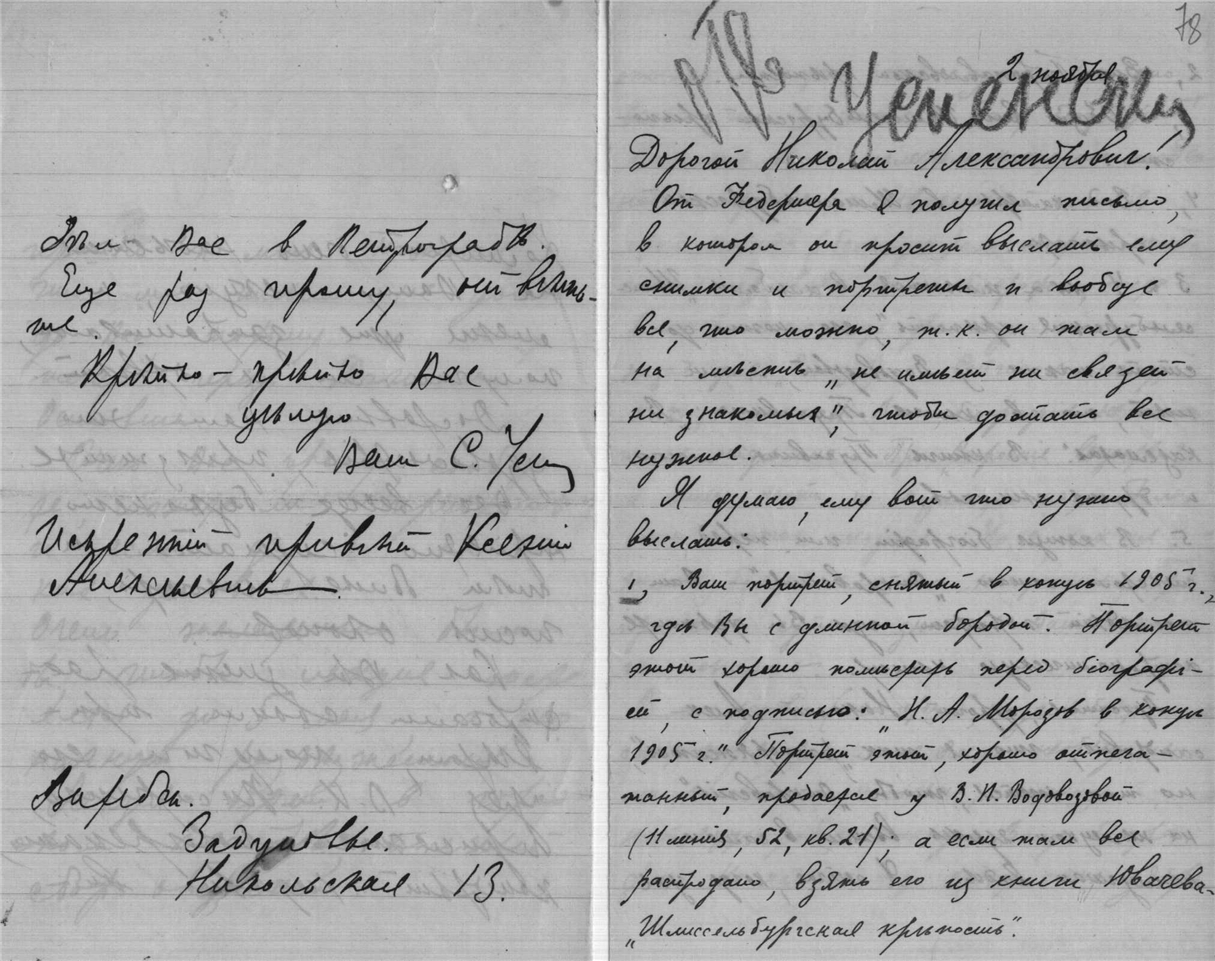 Вас в Петроградѣ.
Еще раз прошу, отвѣть-
те.
Крѣпко-крѣпко Вас
цѣлую
Ваш С. Усп
Искренній привѣт Ксеніи
Алексѣевнѣ.
Витебск.
Задуновье.
Никольская 13.
78
Успенский
2 ноября
Дорогой Николай Александрович!
От я получил письмо,
в котором он просит выслать ему
снимки и портреты и вообще
все, что можно, т.к. он там
на мѣстѣ „не имѣет ни связей
ни знакомых", чтобы достать все
нужное.
Я думаю, ему вот что нужно
выслать:
1, Ваш портрет, снятый в концѣ 1905 г.,
гдѣ Вы с длинной бородой. Портрет
этот хорошо помѣстить перед біографі-
ей, с подписью: „Н. А. Морозов в концѣ
1905 г." Портрет этот, хорошо отпеча-
танный, продается у В. И. Водовозовой
(11 линия, 52, кв. 21); а если там все
распродано, взять его из книги Ювачева-
„Шлиссельбургская крѣпость".